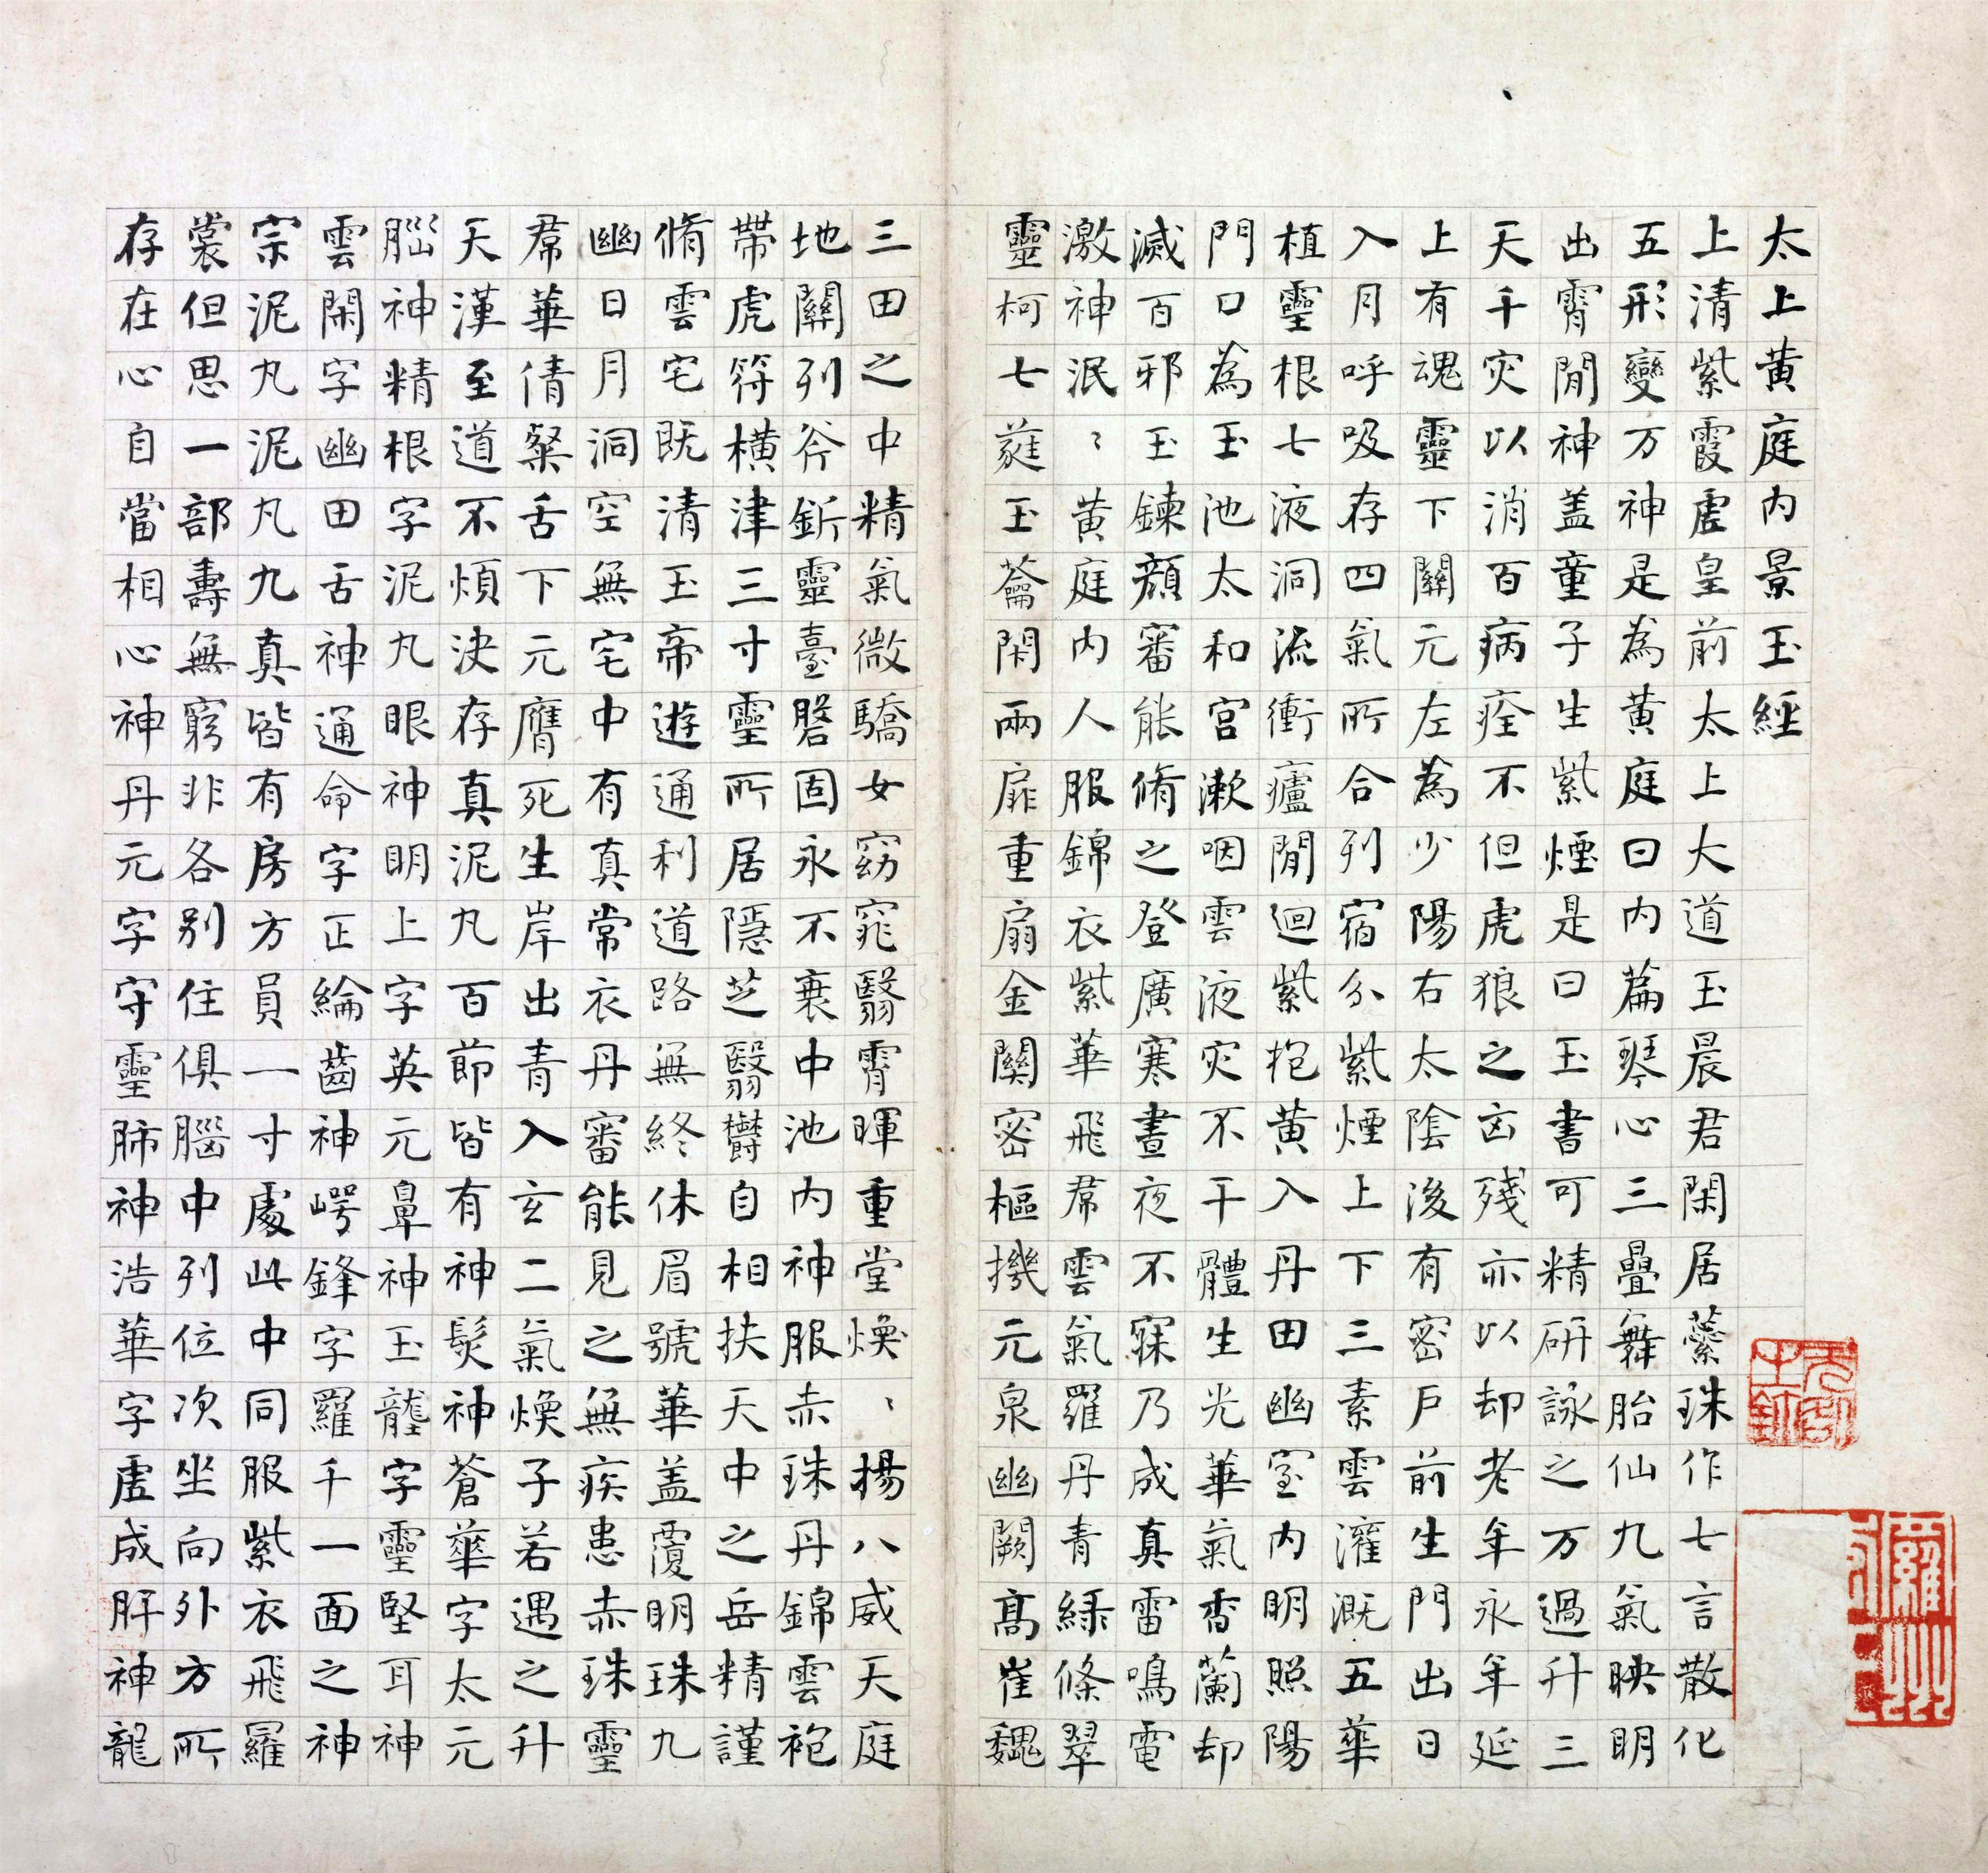 太上黃庭内景玉經
上清紫霞虛皇前太上大道玉晨君閑居蘂珠作七言散化
五形變万神是為黃庭曰内篇琴心三疊舞胎仙九氣映明
出霄間神盖童子生紫煙是曰玉書可精研詠之万過升三
天千灾以消百病痊不但虎狼之凶殘亦以却老年永年延
上有魂靈下關元左為少陽右太陰後有密戶前生門出日
入月呼吸存四氣所合列宿分紫煙上下三素雲灌溉五華
植靈根七液洞流衝廬間迴紫抱黃入丹田幽室内明照陽
門口為玉池太和宫漱咽雲液灾不干體生光華氣香蘭却
滅百邪玉鍊顏審能脩之登廣寒晝夜不寐乃成真雷鳴電
激神泯〻黃庭内人服錦衣紫華飛帬雲氣羅丹青綠條翠
靈柯七蕤玉蘥閑兩扉重扇金關密樞機元泉幽闕高崔巍
三田之中精氣微驕女窈窕翳霄暉重堂煥〻揚八威天庭
地關列斧釿靈臺磐固永不衰中池内神服赤珠丹錦雲袍
帶虎符横津三寸靈所居隱芝翳欝自相扶天中之岳精謹
脩雲宅既清玉帝遊通利道路無終休眉號華盖覆明珠九
幽日月洞空無宅中有真常衣丹審能見之無疾患赤珠靈
帬華倩粲舌下元膺死生岸出青入玄二氣煥子若遇之升
天漢至道不煩決存真泥丸百節皆有神髮神蒼華字太元
腦神精根字泥丸眼神明上字英元鼻神玉壟字靈堅耳神
雲閑字幽田舌神通命字正綸齒神崿鋒字羅千一面之神
宗泥丸泥丸九真皆有房方員一寸處此中同服紫衣飛羅
裳但思一部壽無窮非各别住俱腦中列位次坐向外方所
存在心自當相心神丹元字守靈肺神浩華字虛成肝神龍